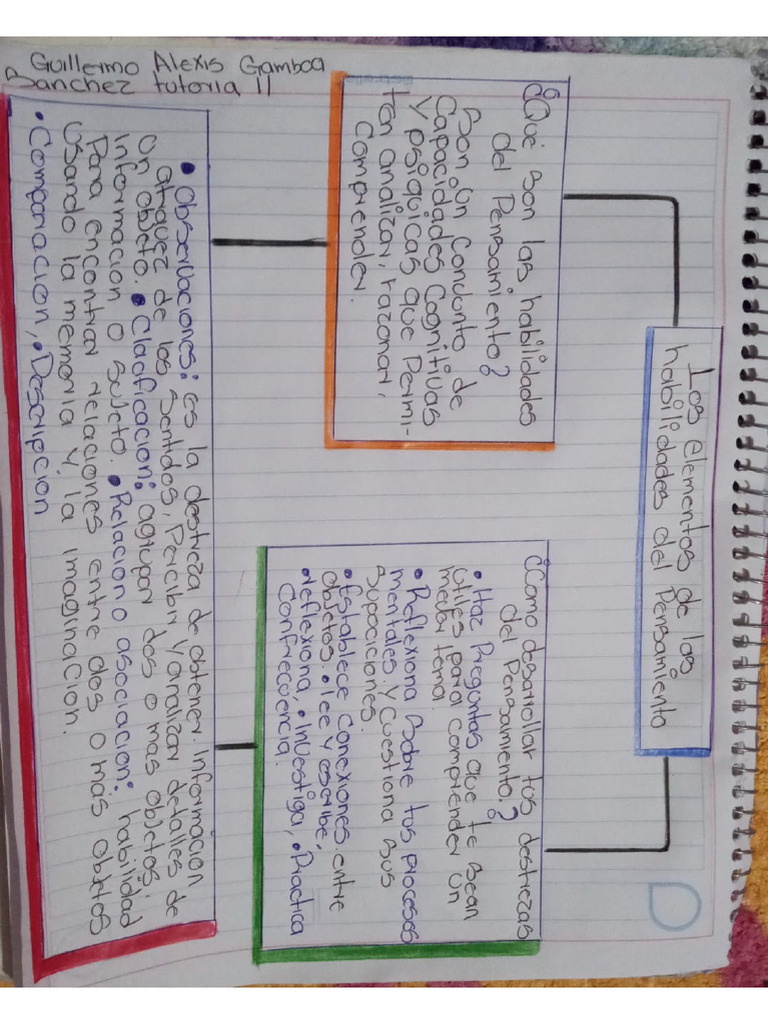 Guillermo Alexis Gamboa
Sanchez tutoria 11
Los elementos de las
habilidades del Pensamiento
¿Que son las habilidades
del Pensamiento?
Son un Condunto de
Capacidades Cognitivas
Y psiquicas que Permi-
ten analizar, razonar,
Comprender.
¿Como desarrollar tus destrezas
del Pensamiento?
• Haz Preguntas que te sean
utiles para comprender un
mejor tema.
• Reflexiona sobre tus procesos
mentales y cuestiona sus
suposiciones.
• Establece conexiones entre
objetos. • lee y escribe,
• reflexiona, • investiga, • Practica
Confrecuencia.
• Observaciones: es la destreza de obtener informacion
atraquez de los sentidos, Percibir y analizar detalles de
un objeto. • Clacificacion: agrupar dos o mas objetos,
informacion o sujeto. • Relacion o asociacion: habilidad
Para encontrar relaciones entre dos o más objetos
Usando la memoria y la imaginacion.
• Comparacion, • Descripcion